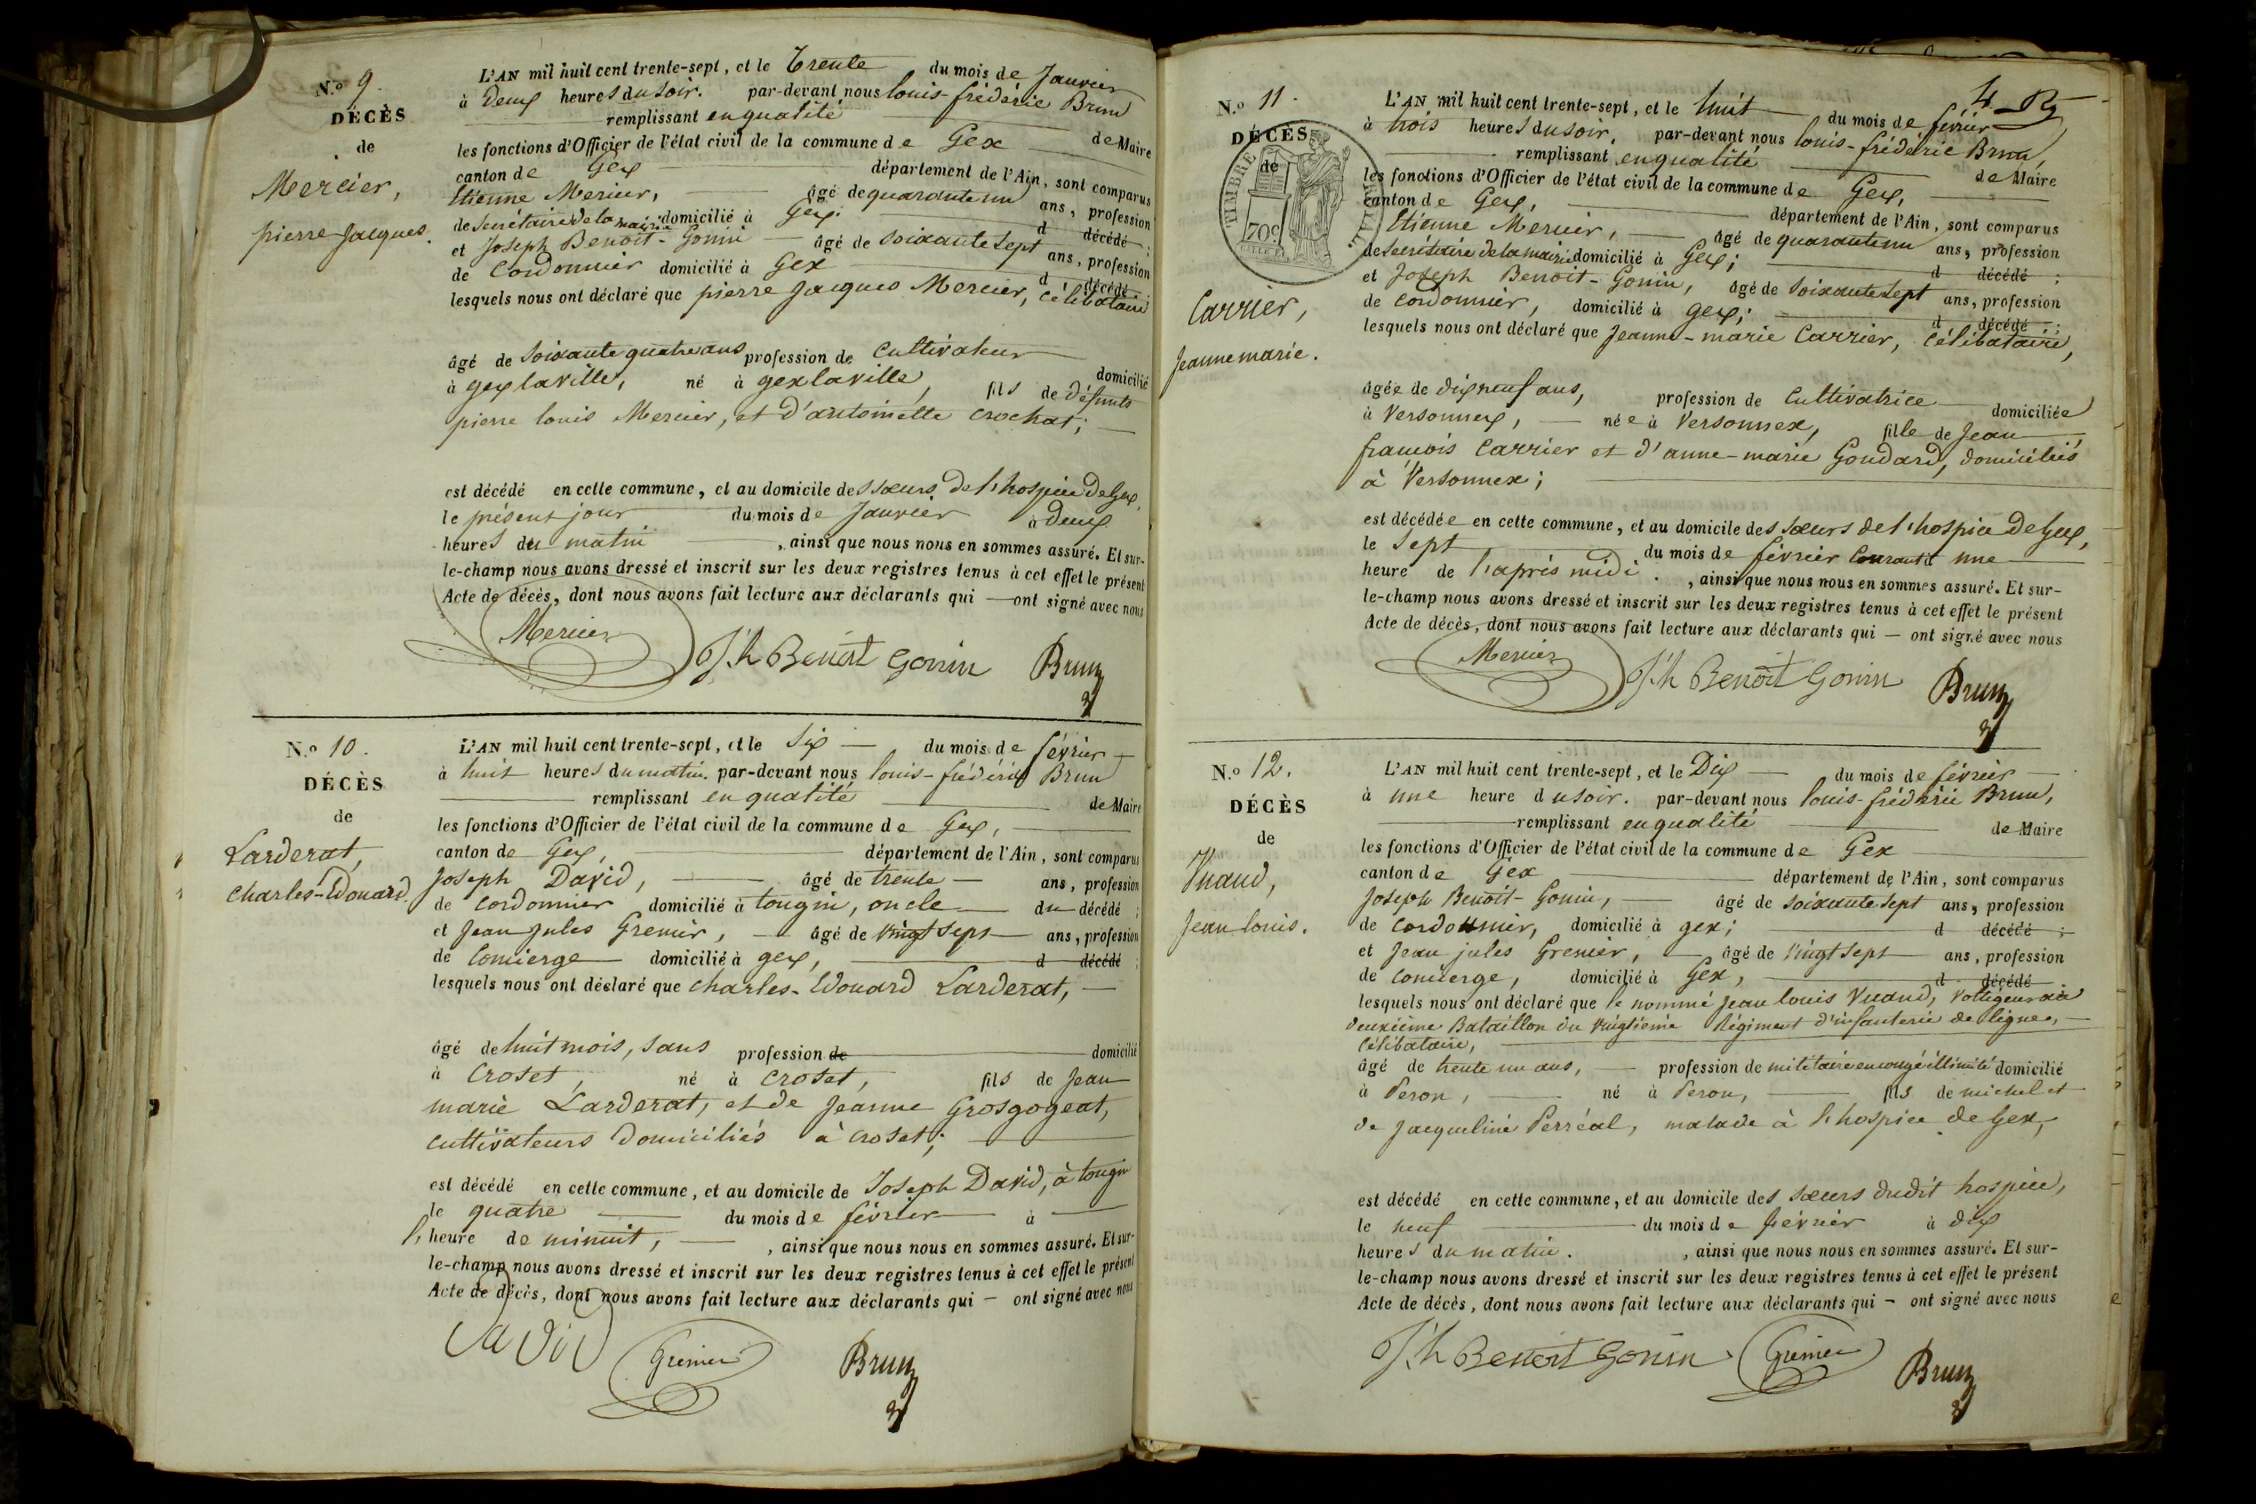 N.o 9.
DÉCÈS
de
Mercier,
pierre Jacques.
L'AN mil huit cent trente-sept, et le trente du mois de Janvier
à deux heures du soir. par-devant nous louis-frédéric Brun
remplissant en qualité de Maire
les fonctions d'Officier de l'état civil de la commune de Gex
canton de Gex département de l'Ain, sont comparus
Etienne Mercier, âgé de quarante un ans, profession
de Secrétaire de la mairie domicilié à Gex. d décédé ;
et Joseph Benoit-Gonin âgé de soixante sept ans, profession
de Cordonnier domicilié à Gex d décédé ;
lesquels nous ont déclaré que pierre Jacques Mercier, célibataire
âgé de soixante quatre ans profession de Cultivateur domicilié
à gex la ville, né à gex la ville, fils de défunts
pierre louis Mercier, et d'antoinette Crochat;
est décédé en cette commune, et au domicile des sœurs de l'hospice de Gex,
le présent jour du mois de Janvier à deux
heures du matin , ainsi que nous nous en sommes assuré. Et sur-
le-champ nous avons dressé et inscrit sur les deux registres tenus à cet effet le présent
Acte de décès, dont nous avons fait lecture aux déclarants qui — ont signé avec nous
Mercier J.h Benoit Gonin Brun
N.o 10.
DÉCÈS
de
Larderat,
Charles-Edouard
L'AN mil huit cent trente-sept, et le Six du mois de février
à huit heures du matin. par-devant nous louis-frédéric Brun
remplissant en qualité de Maire
les fonctions d'Officier de l'état civil de la commune de Gex,
canton de Gex, département de l'Ain, sont comparus
Joseph David, âgé de trente ans, profession
de Cordonnier domicilié à tougin, oncle du décédé ;
et Jean Jules Grenier, âgé de vingt sept ans, profession
de Concierge domicilié à gex, d décédé ;
lesquels nous ont déclaré que Charles-Edouard Larderat,
âgé de huit mois, sans profession de domicilié
à Croset, né à Croset, fils de Jean
marie Larderat, et de Jeanne Grosgogeat,
cultivateurs domiciliés à Croset;
est décédé en cette commune, et au domicile de Joseph David, à tougin
le quatre du mois de février à
l'heure de minuit, , ainsi que nous nous en sommes assuré. Et sur-
le-champ nous avons dressé et inscrit sur les deux registres tenus à cet effet le présent
Acte de décès, dont nous avons fait lecture aux déclarants qui — ont signé avec nous
David Grenier Brun
4
N.o 11.
DÉCÈS
de
TIMBRE
70c
Carrier,
Jeanne marie.
L'AN mil huit cent trente-sept, et le huit du mois de février
à trois heures du soir, par-devant nous louis-frédéric Brun,
remplissant en qualité de Maire
les fonctions d'Officier de l'état civil de la commune de Gex,
canton de Gex, département de l'Ain, sont comparus
Etienne Mercier, âgé de quarante un ans, profession
de Secrétaire de la mairie domicilié à Gex; d décédé ;
et Joseph Benoit-Gonin, âgé de soixante sept ans, profession
de Cordonnier, domicilié à gex; d décédé ;
lesquels nous ont déclaré que Jeanne-marie Carrier, célibataire,
âgée de dix neuf ans, profession de Cultivatrice domiciliée
à Versonnex, née à Versonnex, fille de Jean
françois Carrier et d'anne-marie Goudard, domiciliés
à Versonnex;
est décédée en cette commune, et au domicile des sœurs de l'hospice de Gex,
le Sept du mois de février courant à une
heure de l'après midi. , ainsi que nous nous en sommes assuré. Et sur-
le-champ nous avons dressé et inscrit sur les deux registres tenus à cet effet le présent
Acte de décès, dont nous avons fait lecture aux déclarants qui — ont signé avec nous
Mercier J.h Benoit Gonin Brun
N.o 12.
DÉCÈS
de
Vuaud,
Jean louis.
L'AN mil huit cent trente-sept, et le Dix du mois de février
à une heure du soir. par-devant nous louis-frédéric Brun,
remplissant en qualité de Maire
les fonctions d'Officier de l'état civil de la commune de Gex
canton de Gex département de l'Ain, sont comparus
Joseph Benoit-Gonin, âgé de soixante sept ans, profession
de cordonnier, domicilié à gex; d décédé ;
et Jean jules Grenier, âgé de vingt sept ans, profession
de concierge, domicilié à Gex, d décédé
lesquels nous ont déclaré que le nommé Jean louis Vuaud, voltigeur au
deuxième Bataillon du vingtième Régiment d'infanterie de ligne,
célibataire,
âgé de trente un ans, profession de militaire en congé illimité domicilié
à Peron, né à Peron, fils de michel et
de Jacqueline Perréal, malade à l'hospice de Gex,
est décédé en cette commune, et au domicile des sœurs dudit hospice,
le neuf du mois de février à dix
heures du matin. , ainsi que nous nous en sommes assuré. Et sur-
le-champ nous avons dressé et inscrit sur les deux registres tenus à cet effet le présent
Acte de décès, dont nous avons fait lecture aux déclarants qui — ont signé avec nous
J.h Benoit Gonin Grenier Brun